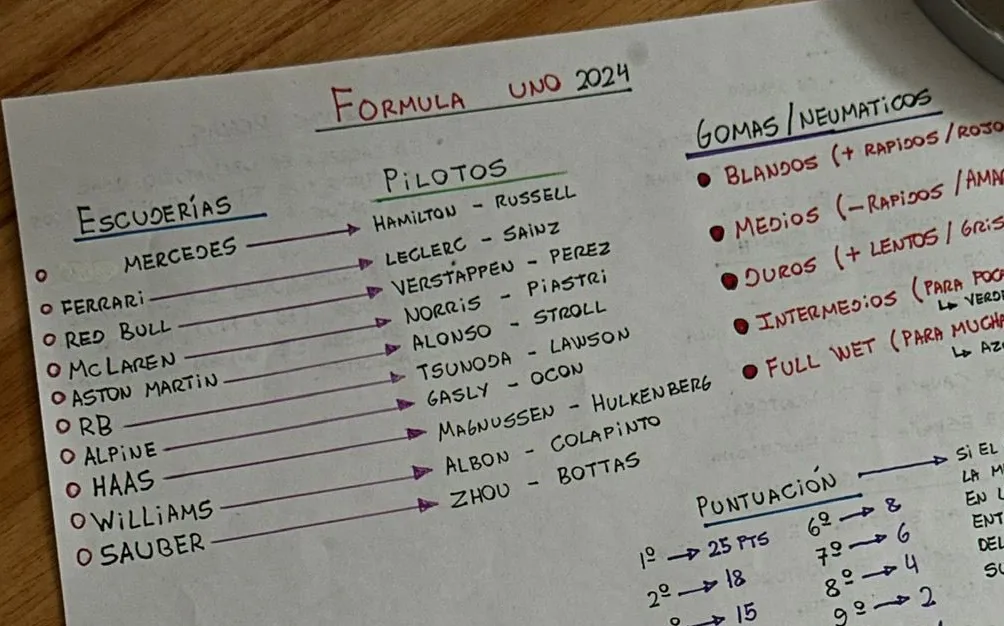 FORMULA UNO 2024
ESCUDERÍAS
MERCEDES
FERRARI
RED BULL
McLAREN
ASTON MARTIN
RB
ALPINE
HAAS
WILLIAMS
SAUBER
PILOTOS
HAMILTON - RUSSELL
LECLERC - SAINZ
VERSTAPPEN - PEREZ
NORRIS - PIASTRI
ALONSO - STROLL
TSUNODA - LAWSON
GASLY - OCON
MAGNUSSEN - HULKENBERG
ALBON - COLAPINTO
ZHOU - BOTTAS
GOMAS/NEUMATICOS
BLANDOS (+ RAPIDOS/ROJO
MEDIOS (-RAPIDOS /AMA
DUROS (+ LENTOS / GRIS
INTERMEDIOS (PARA POCA
↳ VERD
FULL WET (PARA MUCHA
↳ AZ
PUNTUACIÓN → SI EL
LA M
EN L
ENT
DEL
SU
1º → 25 PTS
2º → 18
º → 15
6º → 8
7º → 6
8º → 4
9º → 2